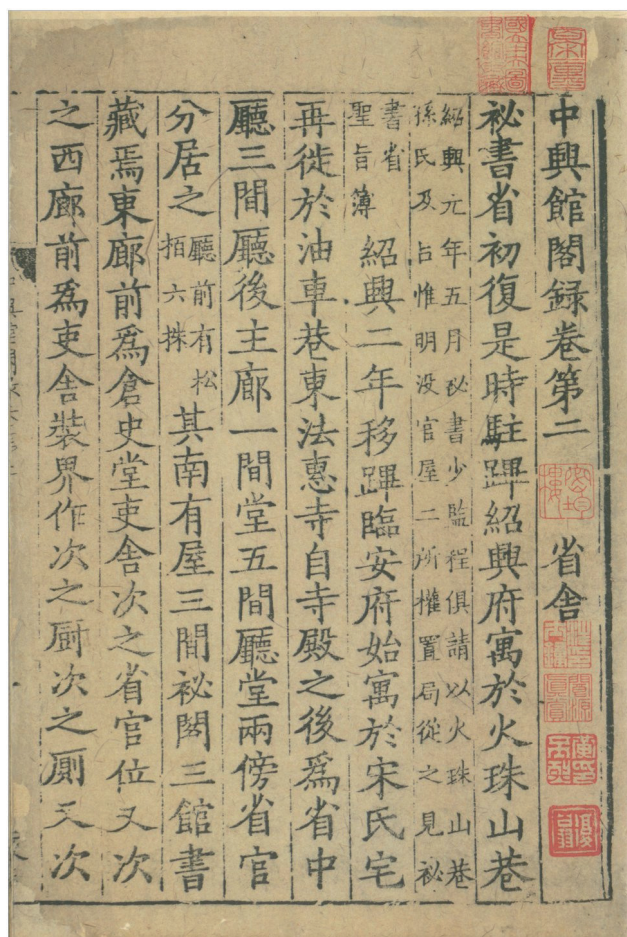 中興館閣録卷第二 省舎
秘書省初復是時駐蹕紹興府寓於火珠山巷
紹興元年五月秘書少監程俱請以火珠山巷
孫氏及吕惟明没官屋二所權置局從之見秘
書省
聖旨簿 紹興二年移蹕臨安府始寓於宋氏宅
再徙於油車巷東法惠寺自寺殿之後爲省中
廳三間廳後主廊一間堂五間廳堂兩傍省官
分居之 廳前有松
栢六株 其南有屋三間祕閣三館書
藏焉東廊前爲倉史堂吏舎次之省官位又次
之西廊前爲吏舎裝界作次之厨次之厠又次